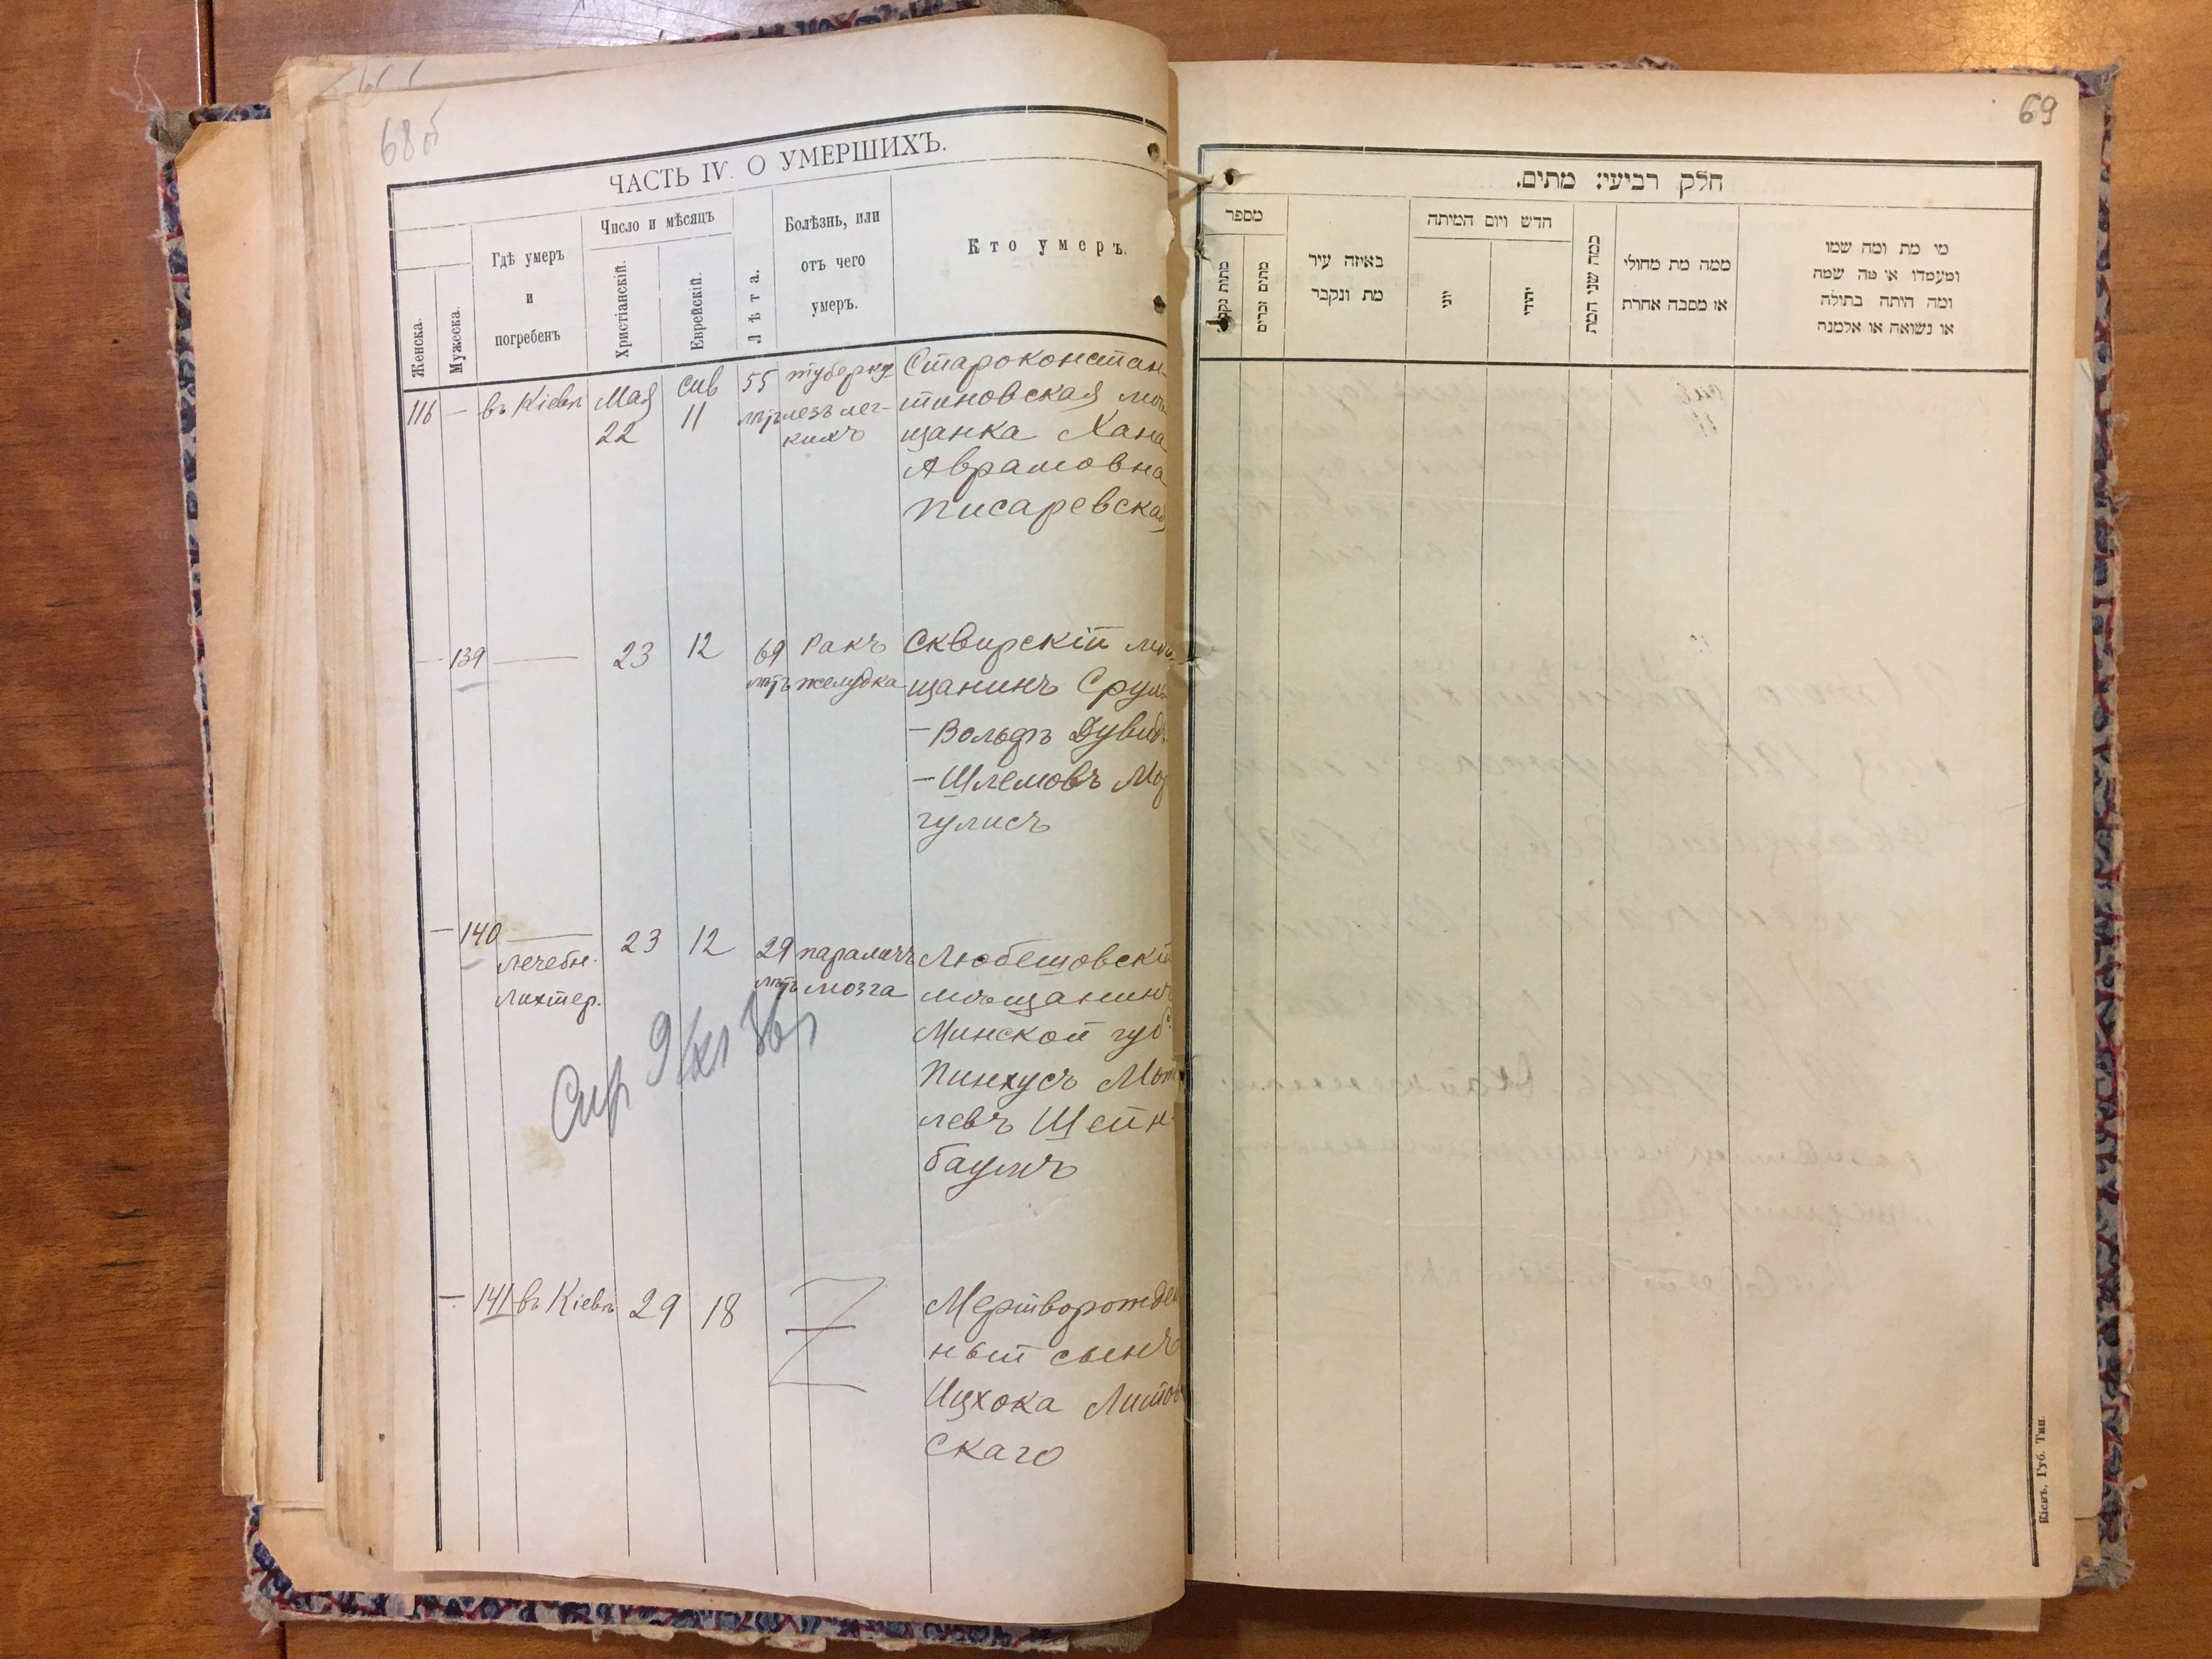 68об
ЧАСТЬ IV. О УМЕРШИХЪ.
Женска.
Мужеска.
Гдѣ умеръ
и
погребенъ
Число и мѣсяцъ
Христіанскій.
Еврейскій.
Лѣта.
Болѣзнь, или
отъ чего
умеръ.
Кто умеръ.
116 — въ Кіевѣ Мая 22 Сив 11 55 лѣтъ
туберку
лезъ лег-
кихъ
Староконстан-
тиновская мѣ
щанка Хана
Аврамовна
Писаревская
— 139 — 23 12 69 лѣтъ
Ракъ
желудка
Сквирскій мѣ-
щанинъ Сруль
-Вольфъ Дувид
-Шлемовъ Мар
гулисъ
— 140 —
лечебн.
Лихтер.
23 12 29 лѣтъ
параличъ
мозга
Любешовскій
мѣщанинъ
Минской губ.
Пинхусъ Мот
левъ Шейн-
баумъ
9/XI 36
— 141 въ Кіевѣ 29 18
Мертворожден
ный сынъ
Ицхока Литов
скаго
69
חלק רביעי: מתים.
מספר
מתות נקבות
מתים זכרים
באיזה עיר
מת ונקבר
חדש ויום המיתה
יוני
יהודי
כמה שני המת
ממה מת מחולי
או מסבה אחרת
מי מת ומה שמו
ומעמדו או מה שמה
ומה היתה בתולה
או נשואה או אלמנה
Кіевъ. Губ. Тип.